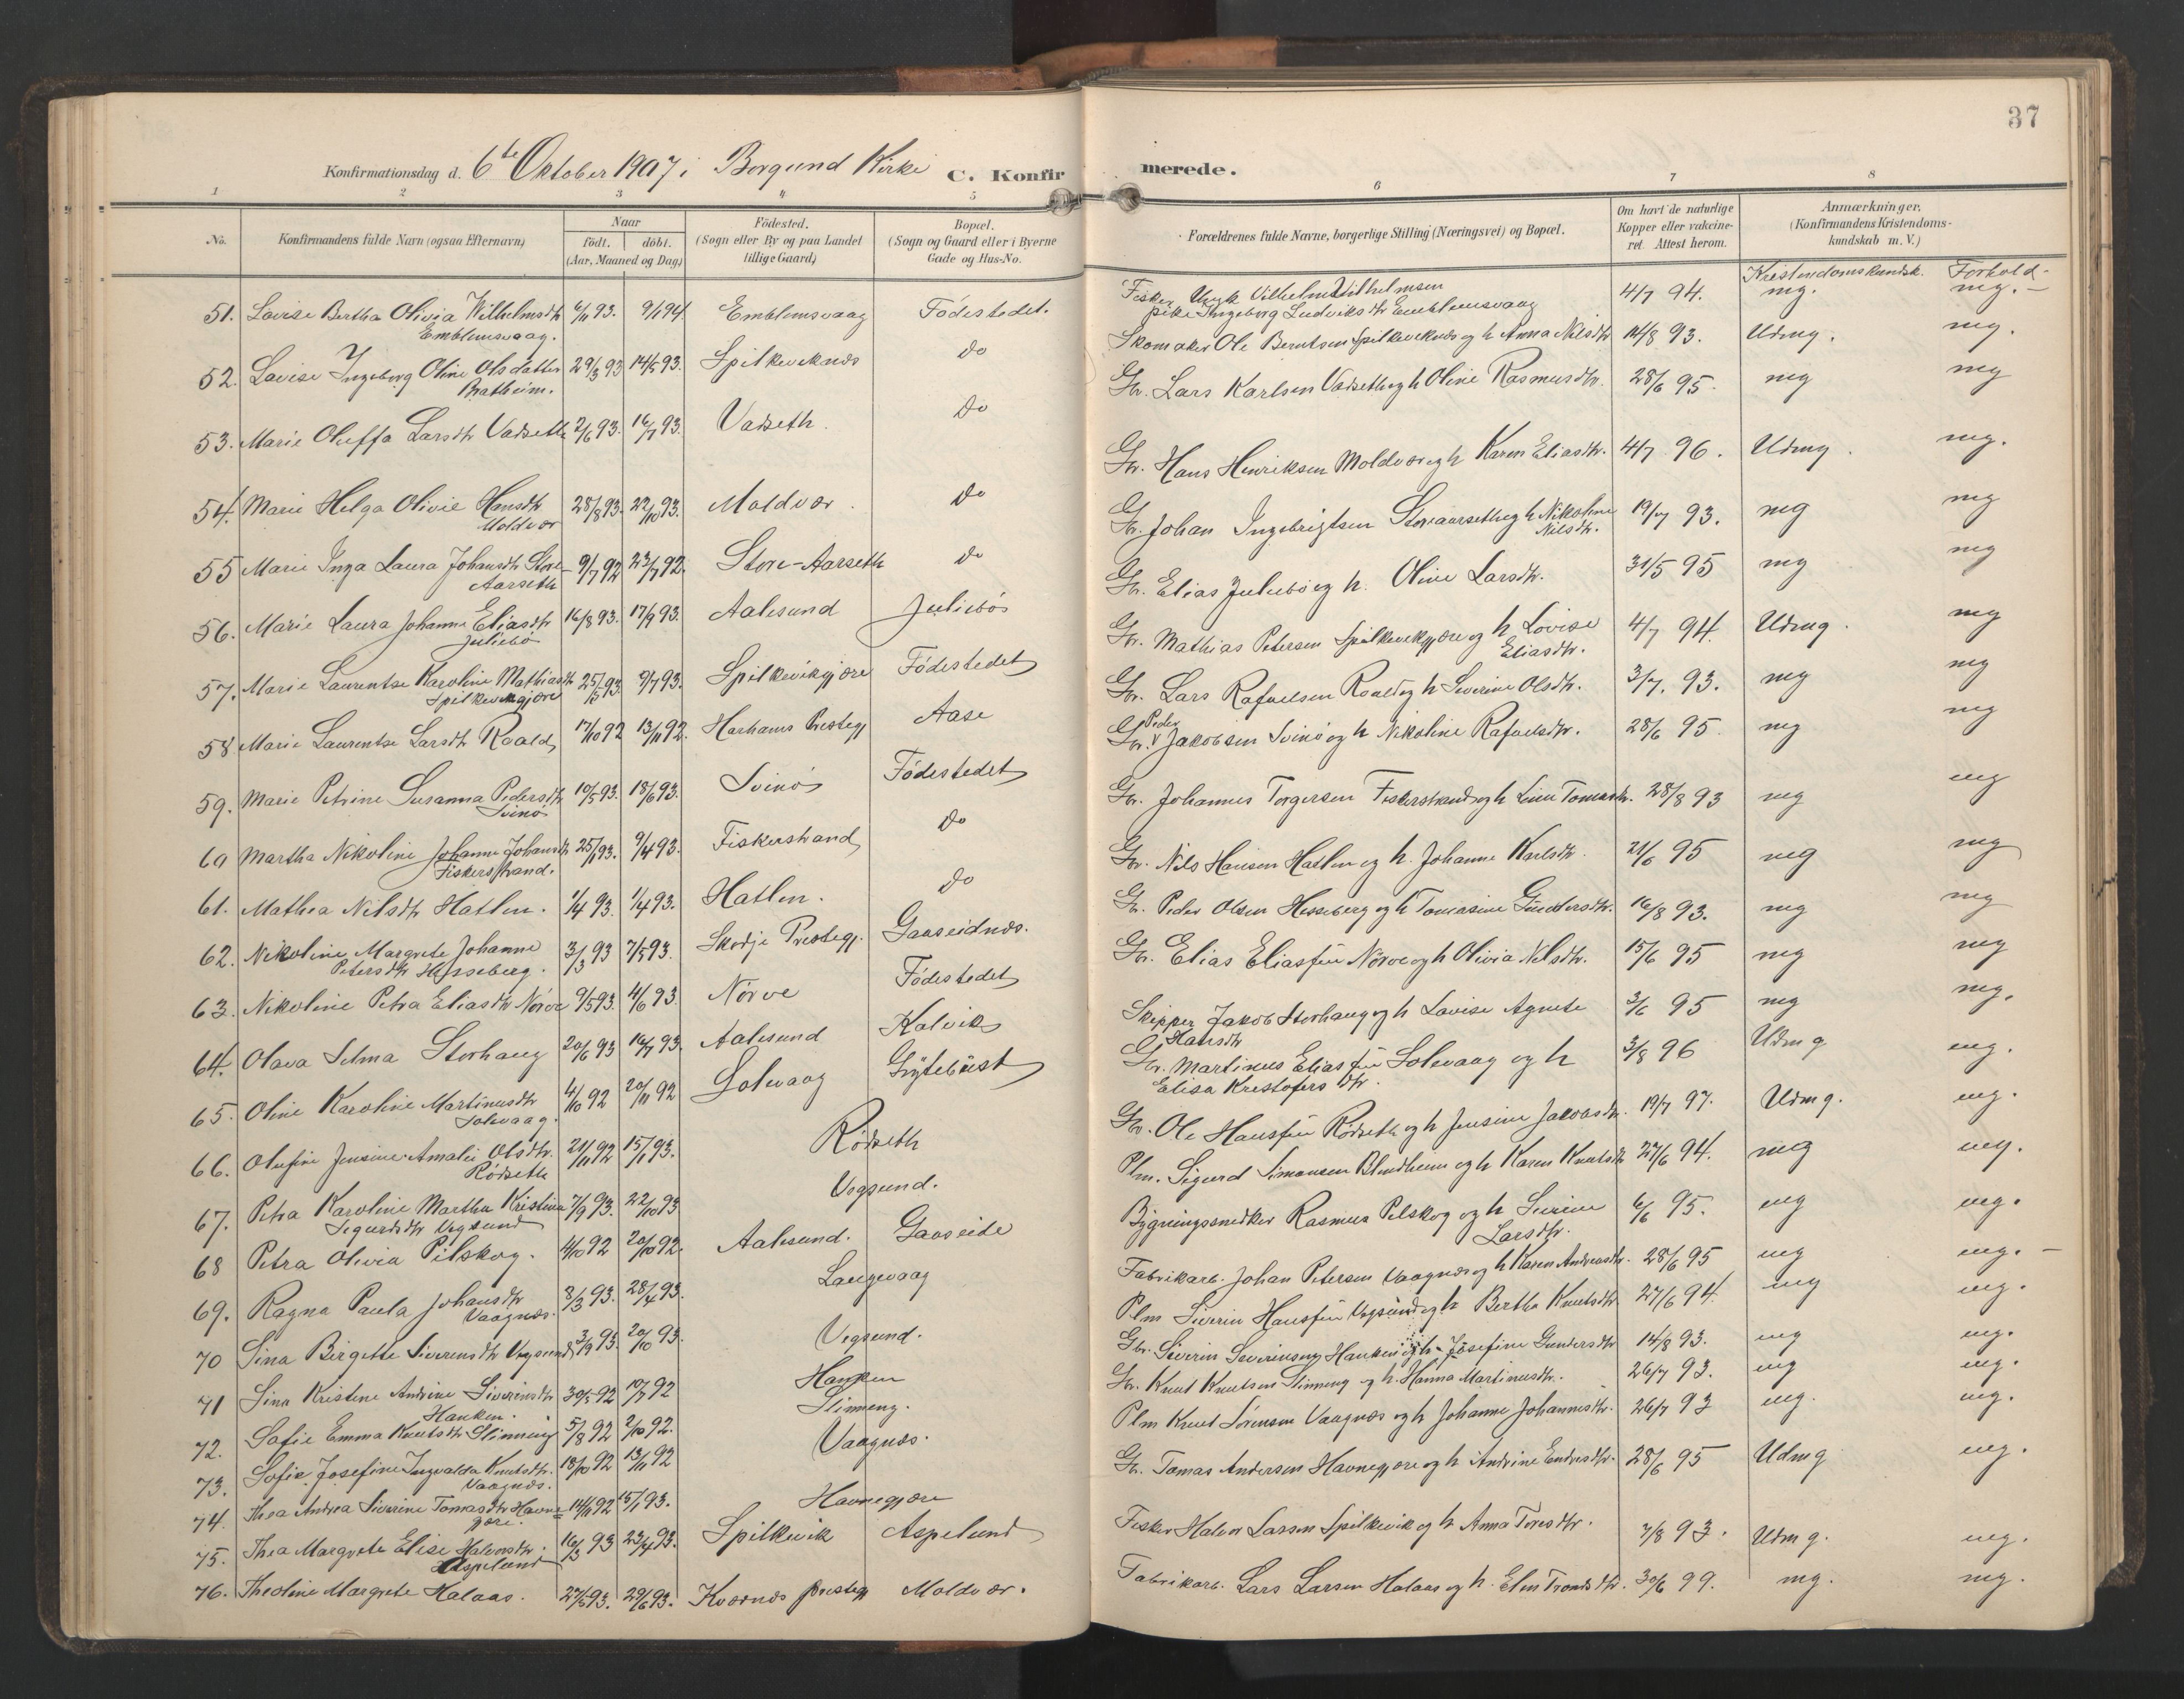 37
Konfirmationsdag d. 6te Oktober 1907 i Borgund Kirke C. Konfirmerede.
1 2 3 4 5 6 7 8
No.
Konfirmandens fulde Navn (ogsaa Efternavn)
Naar
födt. döbt.
(Aar, Maaned og Dag)
Födested.
(Sogn eller By og paa Landet
tillige Gaard)
Bopæl.
(Sogn og Gaard eller i Byerne
Gade og Hus-No.
Forældrenes fulde Navne, borgerlige Stilling (Næringsvei) og Bopæl.
Om havt de naturlige
Kopper eller vakcine-
ret. Attest herom.
Anmærkninger.
(Konfirmandens Kristendoms-
kundskab m. V.)
Kristendomskundsk. Forhold-
51. Lovise Bertha Olivia Wilhelmsdtr 6/11 93. 9/1 94 Emblemsvaag Födestedet. Fisker Vilhelm Vilhelmsen 4/7 94. mg. mg.-
Emblemsvaag. pike Ingeborg Ludviksdtr Emblemsvaag
52. Lovise Ingeborg Oline Olsdatter 29/3 93 14/5 93. Spilkeviknæs do Skomaker Ole Berntsen Spilkeviknæs og h Anna Nilsdtr 14/8 93. Udmg. mg.
Bratheim.
53. Marie Oluffa Larsdtr Vadseth 2/6 93. 16/7 93. Vadseth. do Gbr. Lars Karlsen Vadseth og h Oline Rasmusdtr. 28/6 95. mg mg
54. Marie Helga Olivie Hansdtr 28/8 93. 22/10 93. Moldvær. do Gbr. Hans Henriksen Moldvær og h Karen Eliasdtr. 4/7 96. Udmg. mg.
Moldvær
55 Marie Inga Laura Johansdtr Store- 9/7 92 23/7 92. Store-Aarseth do Gbr. Johan Ingebrigtsen Storeaarseth og h Nikoline 19/7 93. mg mg
Aarseth Nilsdtr.
56. Marie Laura Johanne Eliasdtr 16/8 93. 17/9 93. Aalesund Juliebø Gbr. Elias Juliebø og h. Oline Larsdtr. 31/5 95 mg mg
Juliebø
57. Marie Laurentse Karoline Mathiasdtr 93. 9/7 93. Spilkevikgjære Födestedet Gbr. Mathias Petersen Spilkevikgjære og h Lovise 4/7 94. Udmg. mg
Spilkevikgjære Eliasdtr.
58. Marie Laurentse Larsdtr Roald 17/10 92 13/11 92. Harhams Prestegj Aase Gbr. Lars Rafaelsen Roald og h Severine Olsdtr. 3/7. 93. mg mg
59. Marie Petrine Susanna Pedersdtr 10/5 93. 18/6 93. Svinö Födestedet Gbr. Peder Jakobsen Svinö og h Nikoline Rafaelsdtr. 28/6 95. mg mg
Svinö
60 Martha Nikoline Johanne Johansdtr 25/1 93. 9/4 93. Fiskerstrand do Gbr. Johannes Torgersen Fiskerstrand og h Lina Tomasdtr. 28/8 93 mg mg
Fiskerstrand.
61. Mathea Nilsdtr Hatlen. 1/4 93. 1/4 93. Hatlen. do Gbr. Nils Hansen Hatlen og h. Johanne Karlsdtr. 21/6 95 mg mg
62. Nikoline Margrete Johanne 3/3 93 7/5 93. Skodje Prestegj. Gaaseidnæs. Gbr. Peder Olsen Hesseberg og h Tomasine Gundersdtr. 16/8 93. mg mg
Petersdtr Hesseberg.
63. Nikoline Petra Eliasdtr Nörve 9/5 93. 4/6 93. Nörve Födestedet Gbr. Elias Eliassen Nörve og h Olivia Nilsdtr. 15/6 95 mg mg
64. Olava Selma Storhaug 20/6 93 16/7 93. Aalesund Kalvik Skipper Jakob Storhaug og h Lovise Agnete 3/6 95 mg mg.
Hansdtr
65. Oline Karoline Martinusdtr 4/10 92 20/11 92 Solevaag Grytebust Gbr. Martinus Eliassen Solevaag og h 3/8 96 Udmg mg.
Solevaag. Elisa Kristofersdtr.
66. Olufine Jensine Amalie Olsdtr. 21/11 92 15/1 93. Rödseth Gbr. Ole Hanssen Rödseth og h Jensine Jakobsdtr. 19/7 97. Udmg. mg.
Rödseth
67. Petra Karoline Martha Kristine 7/9 93. 22/10 93 Vegsund. Plm. Sigurd Simonsen Blindheim og h Karen Knutsdtr 27/6 94. mg mg.
Sigurdsdtr Vegsund
68 Petra Olivia Pilskog. 4/10 92 20/10 92. Aalesund. Gaaseide Bygningssnedker Rasmus Pilskog og h Severine 6/6 95. mg mg.
Larsdtr.
69. Ragna Paula Johansdtr 8/3 93. 28/4 93. Langevaag Fabrikarb. Johan Petersen Vaagnæs og h Karen Andreasdtr. 28/6 95 mg mg.-
Vaagnæs.
70 Sina Birgitte Siverensdtr Vegsund 3/9 93. 20/10 93. Vegsund. Plm Siverin Hanssen Vegsund og h Bertha Knutsdtr 27/6 94. mg mg.
71 Sina Kristine Andrine Siverinsdtr 30/5 92 10/7 92 Hanken Gbr. Siverin Severinsen Hanken og h. Josefine Gundersdtr 14/8 93. mg mg.
Hanken.
72. Sofie Emma Knutsdtr Slinning 5/8 92 2/10 92. Slinning. Gbr. Knut Knutsen Slinning og h. Hanna Martinusdtr. 26/7 93. mg mg.
73. Sofie Josefine Ingvalda Knutsdtr. 18/10 92 13/11 92 Vaagnæs. Plm Knut Sörensen Vaagnæs og h Johanne Johannesdtr. 26/7 93 mg. mg.
Vaagnæs.
74. Thea Andrea Siverine Tomasdtr Havne= 14/11 92 15/1 93. Havnegjære Gbr. Tomas Andersen Havnegjære og h Andrine Endresdtr. 28/6 95 Udmg mg.
gjære.
75. Thea Margrete Elise Halvorsdtr. 16/3 93 23/4 93. Spilkevik Aspelund Fisker Halvor Larsen Spilkevik og h Anna Toresdtr. 7/8 93. Udmg. mg.
Aspelund
76. Theoline Margrete Halaas. 27/5 93. 29/6 93. Kværnæs prestegj Moldvær. Fabrikarb. Lars Larsen Halaas og h. Elen Trondsdtr. 30/6 99. mg. mg.